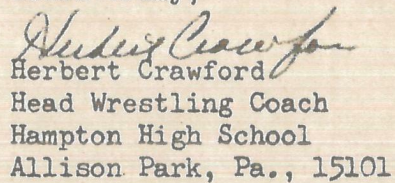 Herbert Crawford
Herbert Crawford
Head Wrestling Coach
Hampton High School
Allison Park, Pa., 15101